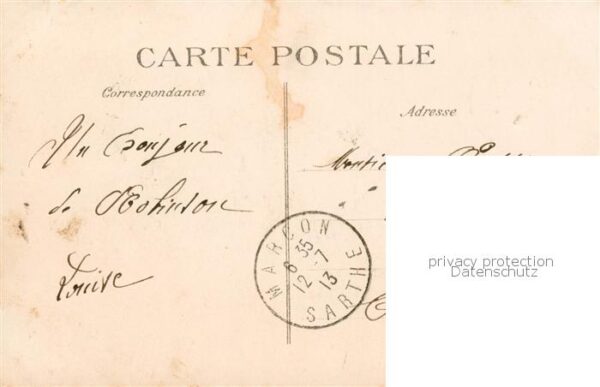 CARTE POSTALE
Correspondance
Adresse
Un bonjour
de Robinson
Louise
Monsieur
MARCON
6 35
12 - 7
13
SARTHE
privacy protection
Datenschutz